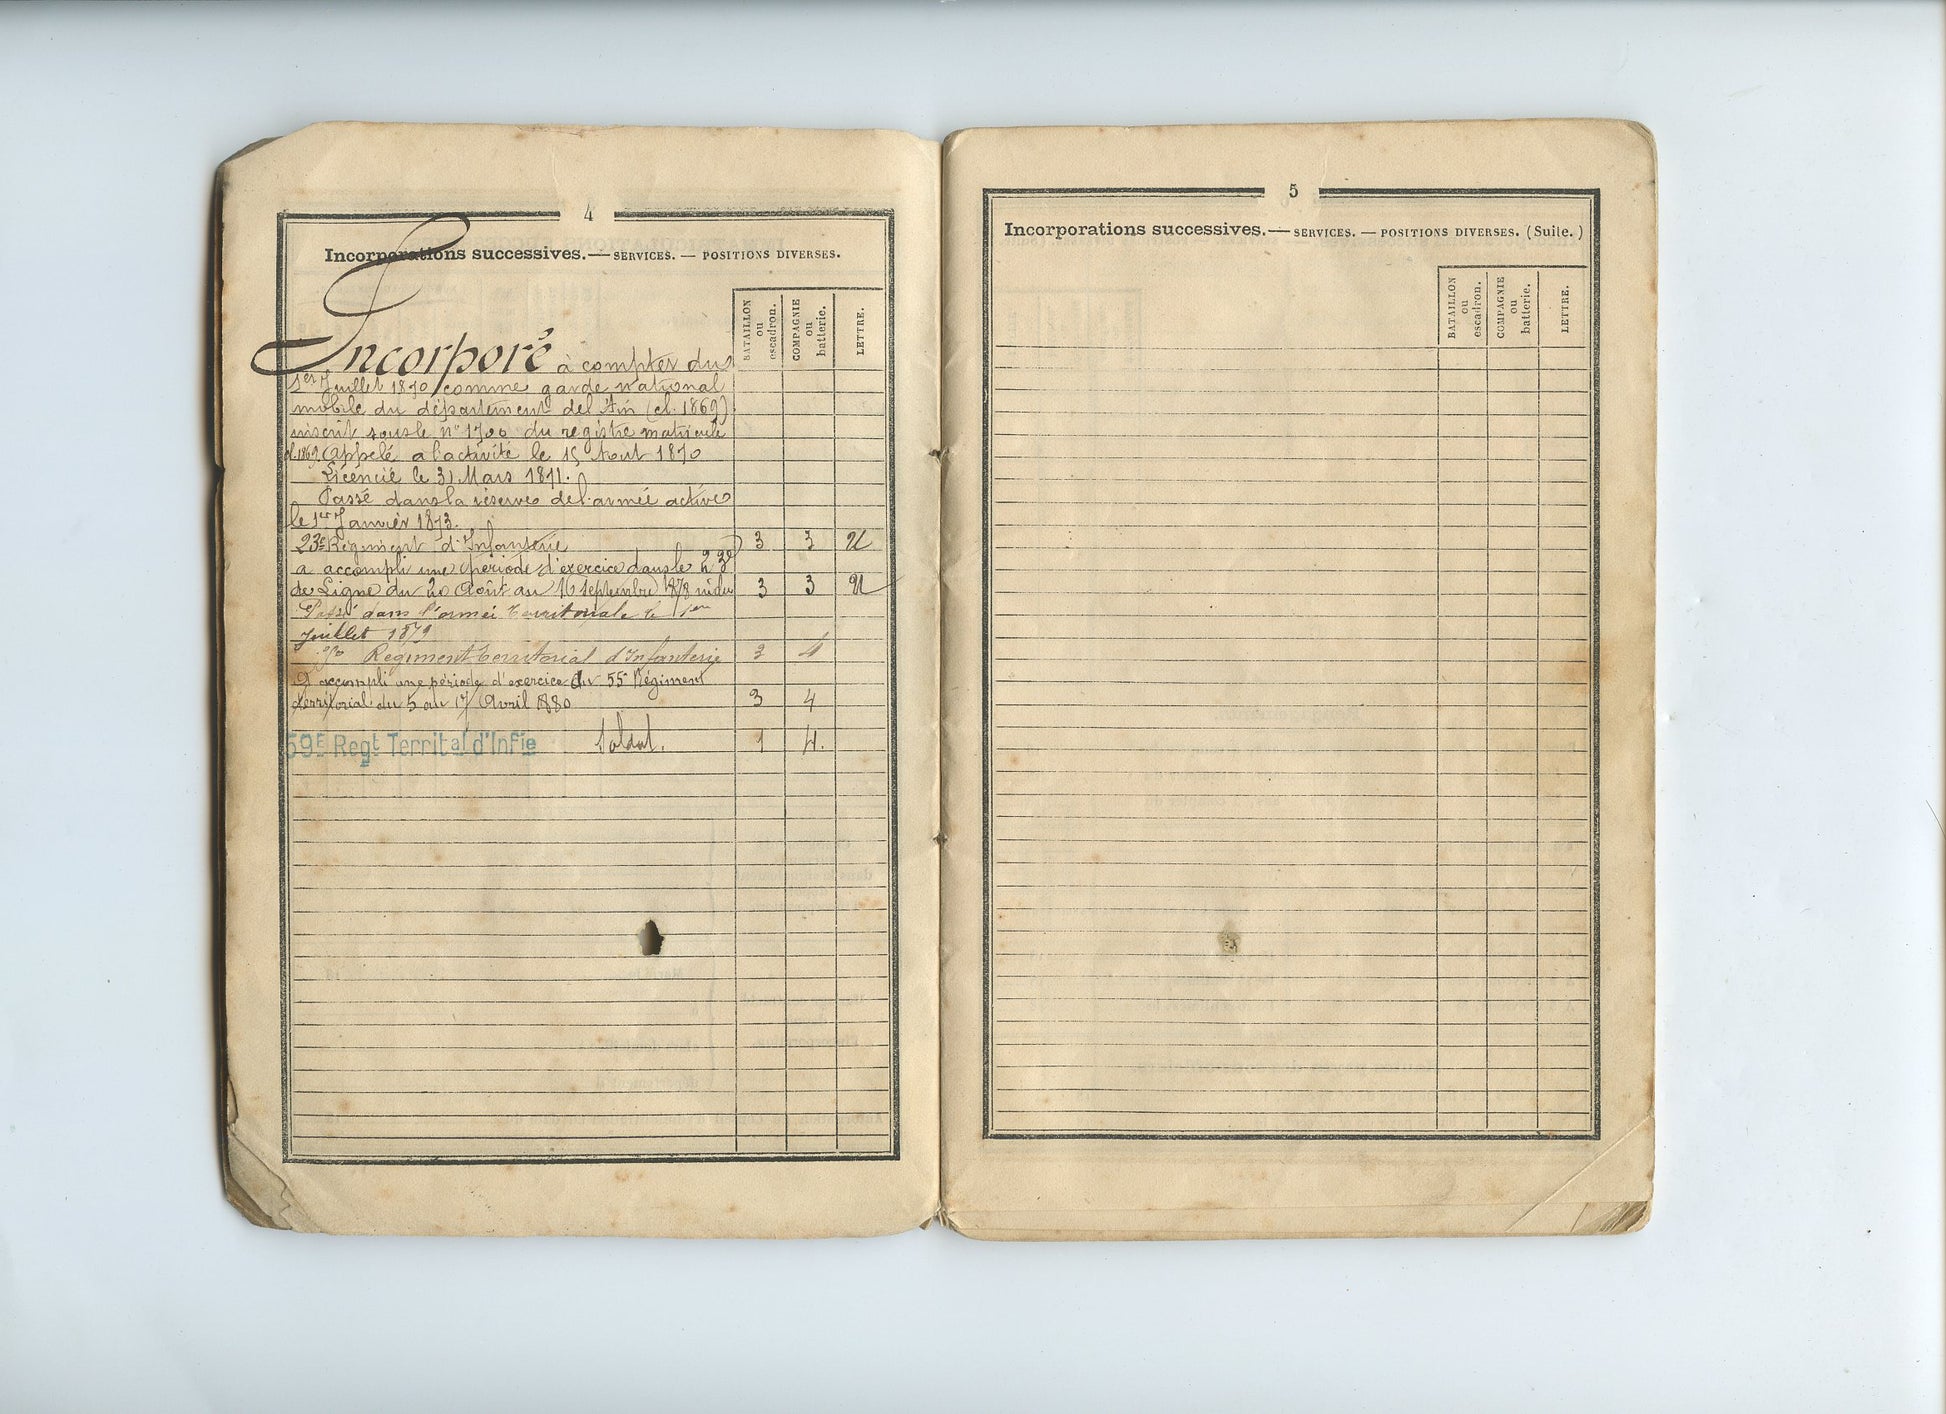 4
Incorporations successives. — SERVICES. — POSITIONS DIVERSES.
BATAILLON ou escadron.
COMPAGNIE ou batterie.
LETTRE.
Incorporé à compter du
1er Juillet 1870 comme garde national
mobile du département de l'Ain (cl. 1869)
inscrit sous le n° 1700 du registre matricule
cl. 1869. Appelé a l'activité le 15 Aout 1870
Licencié le 31 Mars 1871.
Passé dans la réserve de l'armée active
le 1er Janvier 1873.
23e Régiment d'Infanterie 3 3
a accompli une période d'exercice dans le 23e
de Ligne du 20 Août au 16 septembre 1878 3 3
Passé dans l'armée territoriale le 1er
Juillet 1879
Régiment territorial d'Infanterie 3 4
A accompli une période d'exercice du 55e Régiment
territorial du 5 au 17 Avril 1880 3 4
59E Regt Territal d'Infie Soldat. 1 4.
5
Incorporations successives. — SERVICES. — POSITIONS DIVERSES. (Suite.)
BATAILLON ou escadron.
COMPAGNIE ou batterie.
LETTRE.